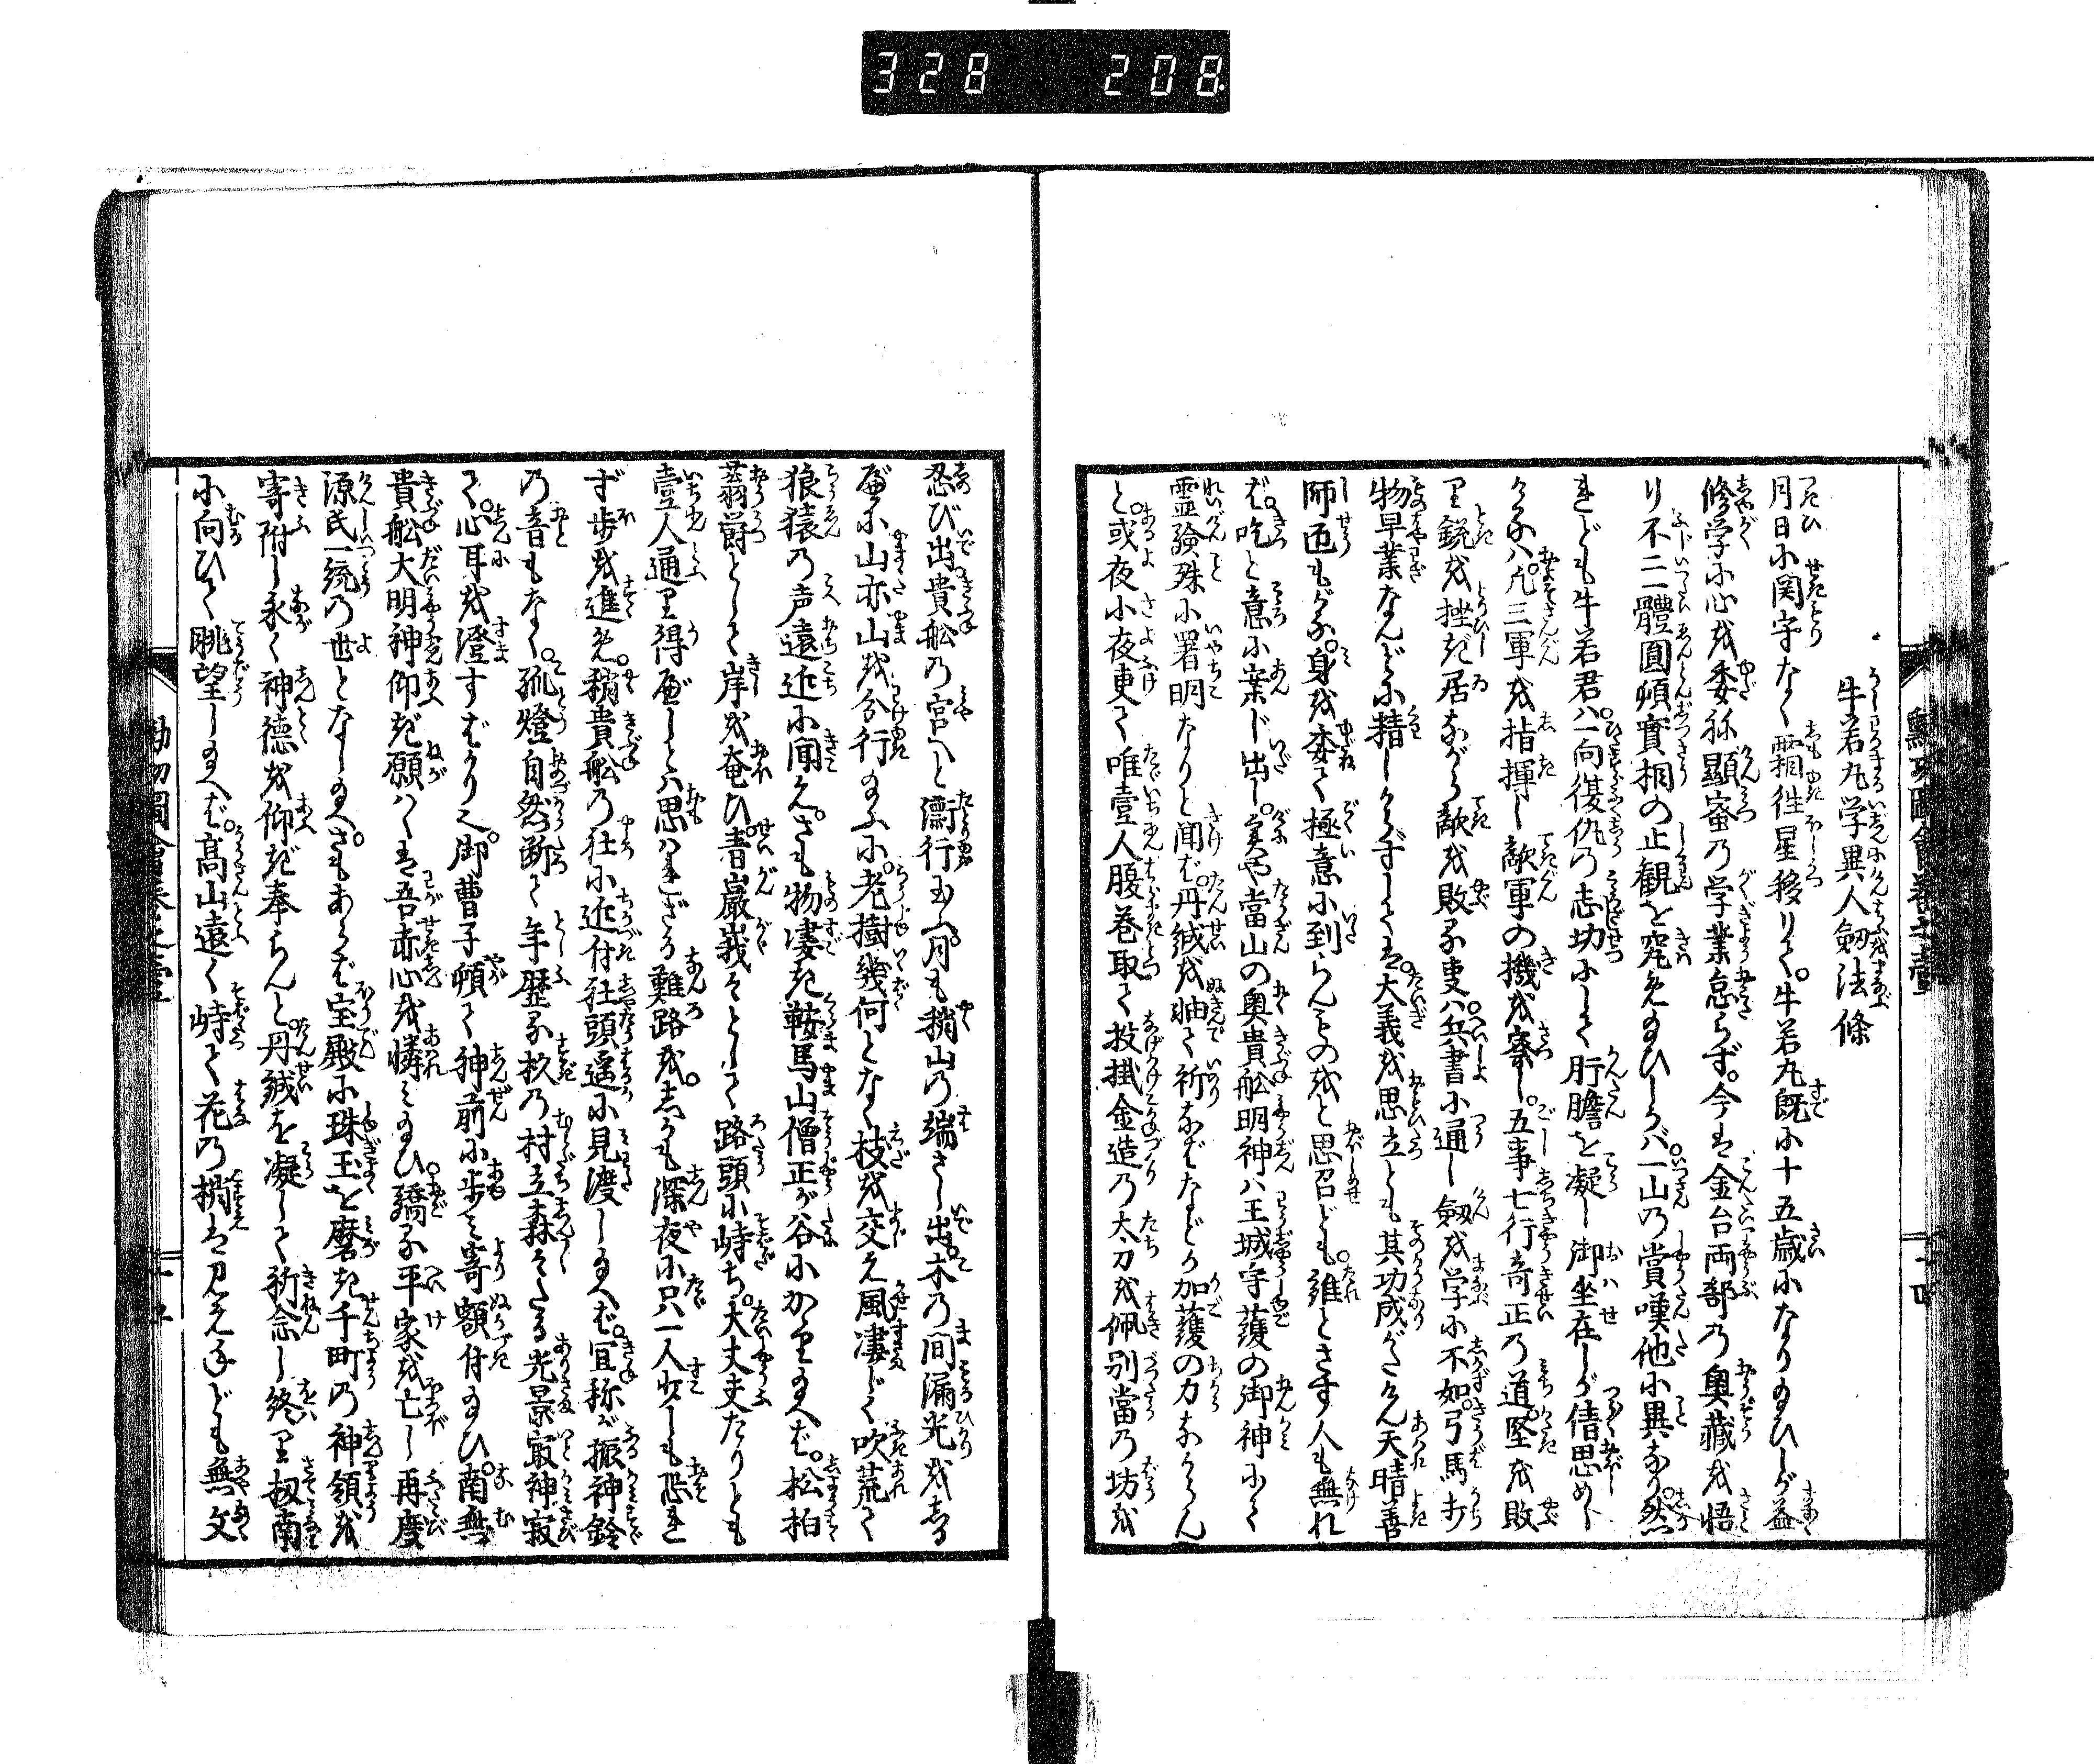 328 208
牛若丸学異人劔法條
月日に関守なく霜往星移りて。牛若丸既に十五歳になり給ひしが益
修学に心を委ね顕蜜の学業怠らず。今は金台両部の奥蔵を悟
り不二體圓頓實相の止観を究め給ひしかバ。一山の賞嘆他に異なり。然
れども牛若君ハ。一向復仇の志切にして肝膽を凝し御坐在しが倩思めし
けるハ。凡三軍を指揮し敵軍の機を察し。五事七行奇正の道。堅を敗
り鋭を挫ぎ居ながら敵を敗る吏ハ。兵書に通し劔を学に不如。弓馬打
物早業なんどに精しからずしては。大義を思立とも其功成がたけん天晴善
師匠もがな。身を委て極意に到らんものをと思召ども。誰とさす人も無れ
ば。吃と意に案じ出し。実や當山の奥貴舩明神ハ王城守護の御神にて
霊驗殊に署明なりと聞ば。丹誠を抽て祈なばなどか加護の力なからん
と。或夜小夜更て唯壹人腹巻取て投掛金造の太刀を佩別當の坊を
忍び出。貴舩の宮へと𢕟行玉ふ。月も稍山の端さし出。木の間漏光をしる
べに山亦山を分行給ふに。老樹幾何となく枝を交え風凄じく吹荒て
狼猿の声遠近に聞え。さも物凄き鞍馬山僧正が谷にかゝり給へば。松柏
蓊欝として岸を奄ひ。青巖峩々として路頭に峙ち。大丈夫たりとも
壹人通り得べしとハ思はれざる難路を。しかも深夜に只一人少しも恐れ
ず歩を進め。稍貴舩の社に近付社頭遥に見渡し給へば。宜祢が振神鈴
の音もなく。孤燈自然断て年歴る杉の村立森々たる光景寂神寂
て。心耳を澄すばかり也。御曹子頓て神前に歩み寄額付給ひ。南無
貴舩大明神仰ぎ願はくは吾赤心を憐み給ひ。驕る平家を亡し再度
源氏一統の世となし給へ。さもあらば宝殿に珠玉を磨き千町の神領を
寄附し永く神徳を仰ぎ奉らんと。丹誠を凝して祈念し終り扨南
に向ひて眺望し給へば。高山遠く峙て花の梢は見えねども無文